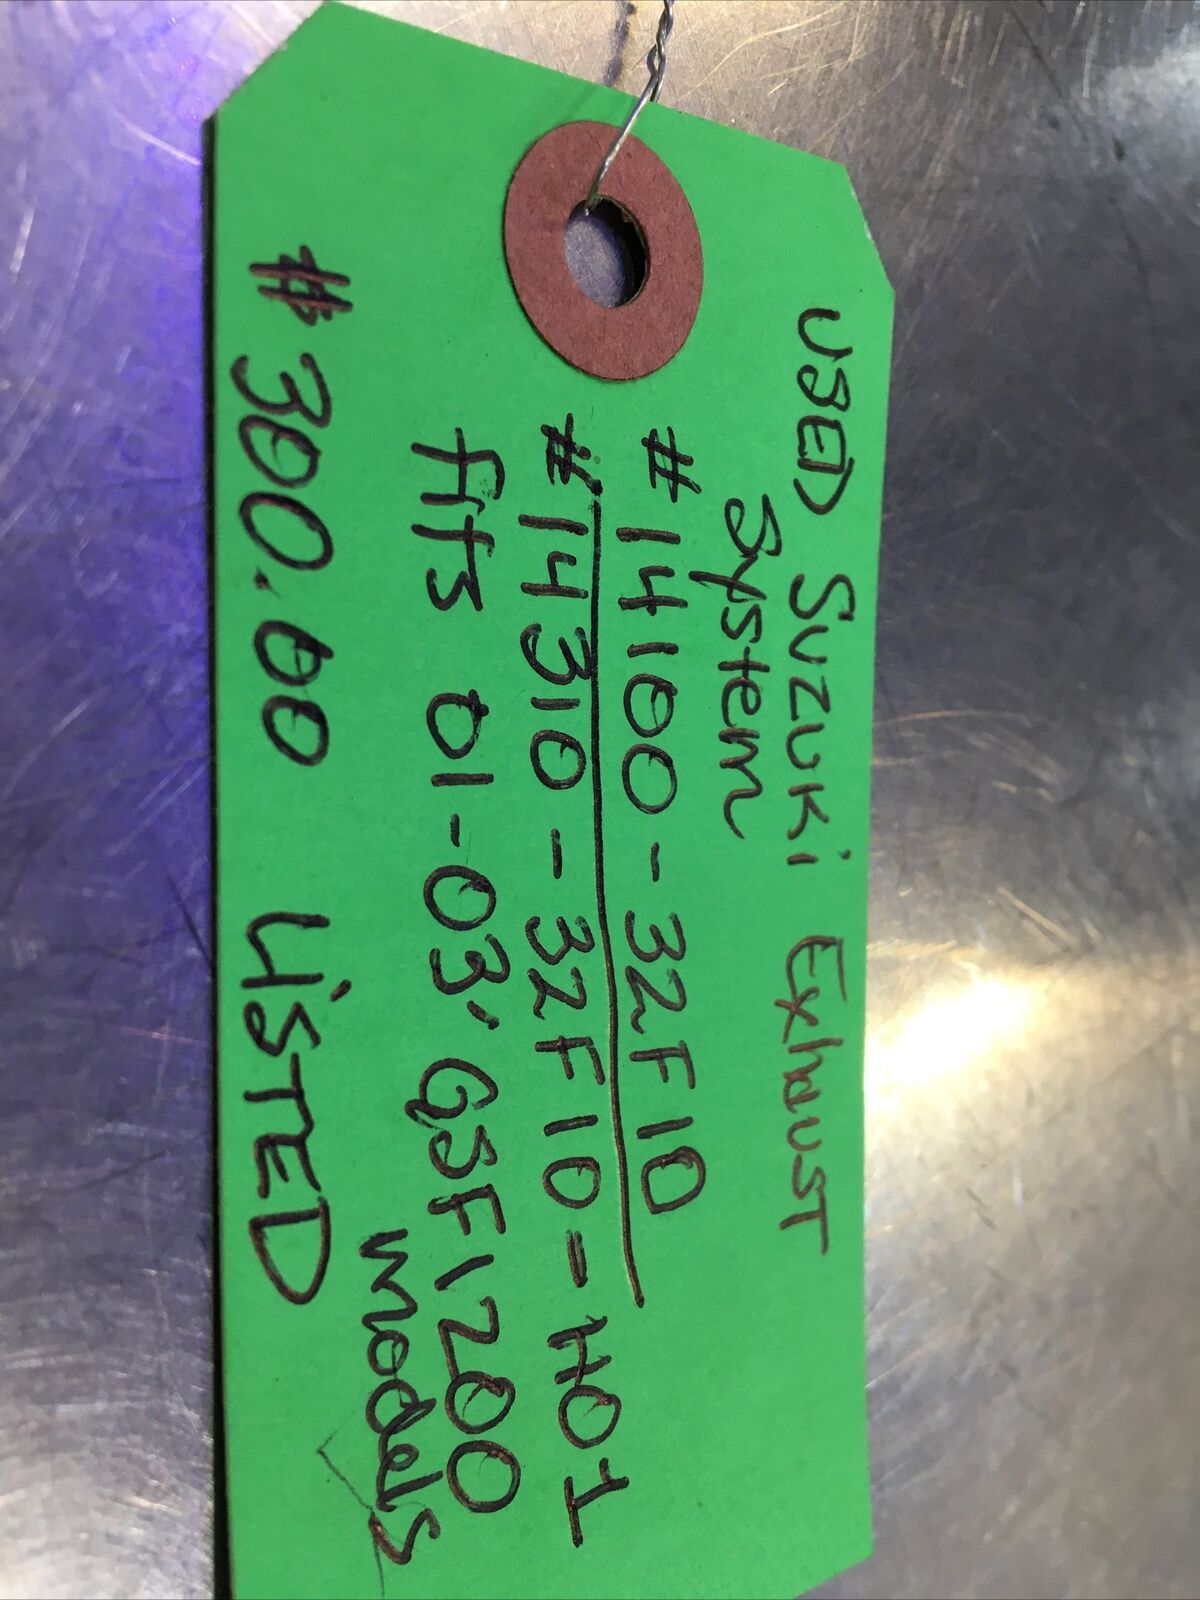 USED Suzuki Exhaust
System
# 14100-32F10
# 14310-32F10-H01
fits 01-03' GSF1200
models
# 300.00 LiSTED